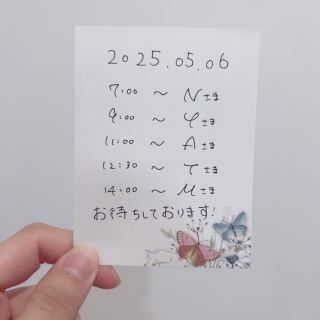 2025.05.06
7:00 〜 Nさま
9:00 〜 Yさま
11:00 〜 Aさま
12:30 〜 Tさま
14:00 〜 Mさま
お待ちしております!